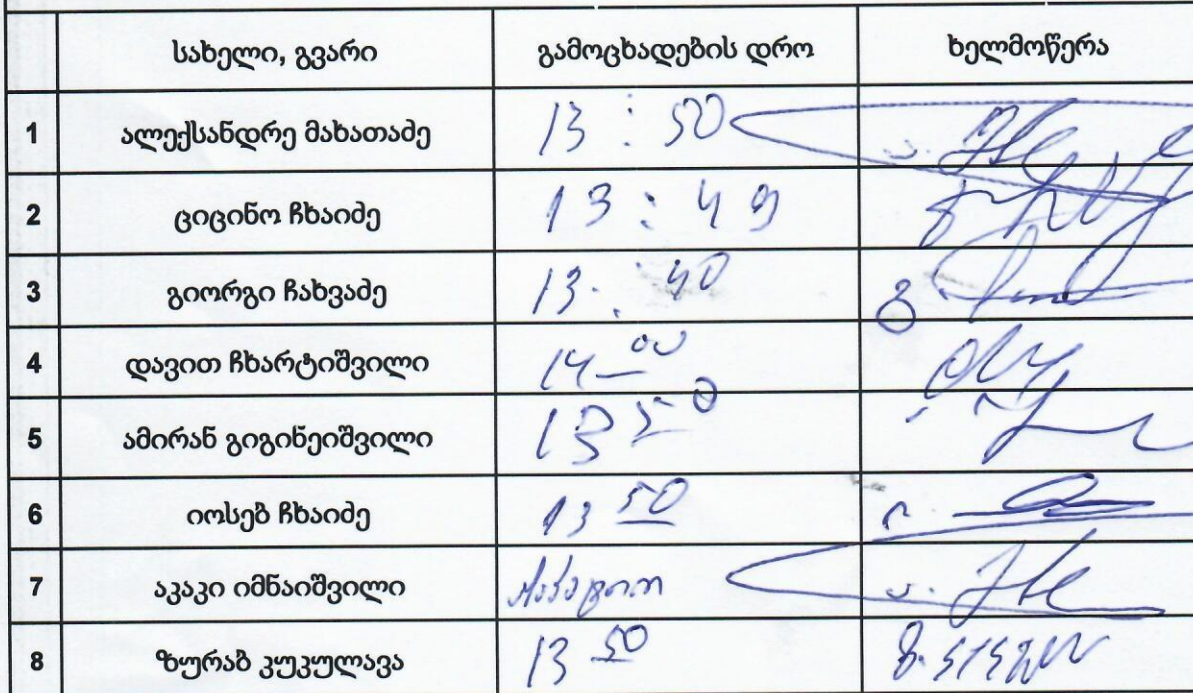 სახელი, გვარი გამოცხადების დრო ხელმოწერა
1 ალექსანდრე მახათაძე 13:50
2 ციცინო ჩხაიძე 13:49
3 გიორგი ჩახვაძე 13:40
4 დავით ჩხარტიშვილი 14 00
5 ამირან გიგინეიშვილი 13 50
6 იოსებ ჩხაიძე 13 50
7 აკაკი იმნაიშვილი
8 ზურაბ კუკულავა 13 50